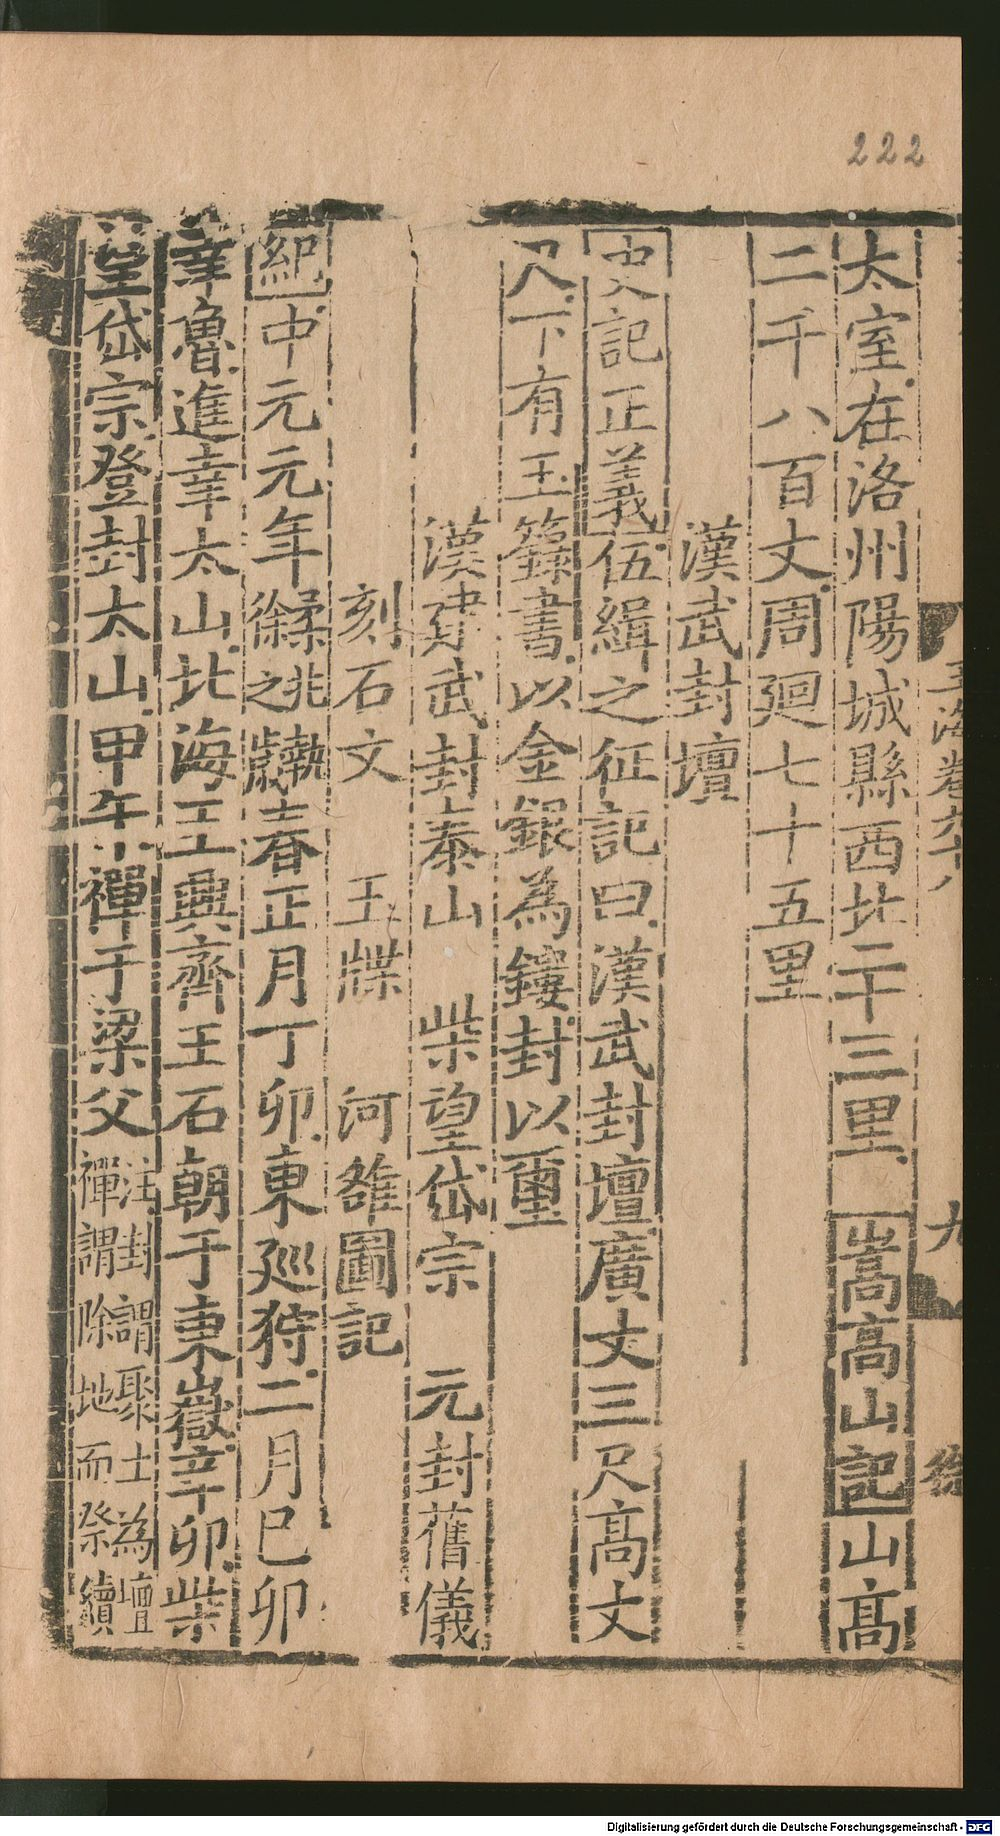 222
玉海卷九十八
九
太室在洛州陽城縣西北二十三里嵩高山記山高
二千八百丈周廻七十五里
漢武封壇
史記正義伍緝之征記曰漢武封壇廣丈三尺高丈
尺下有玉籙書以金銀為鏤封以璽
漢建武封泰山 柴望岱宗 元封舊儀
刻石文 玉牒 河雒圖記
紀中元元年
春正月丁卯東巡狩二月己卯
幸魯進幸太山北海王興齊王石朝于東嶽辛卯柴
望岱宗登封太山甲午禪于梁父注封謂聚土為壇禪謂除地而祭續
Digitalisierung gefördert durch die Deutsche Forschungsgemeinschaft - DFG